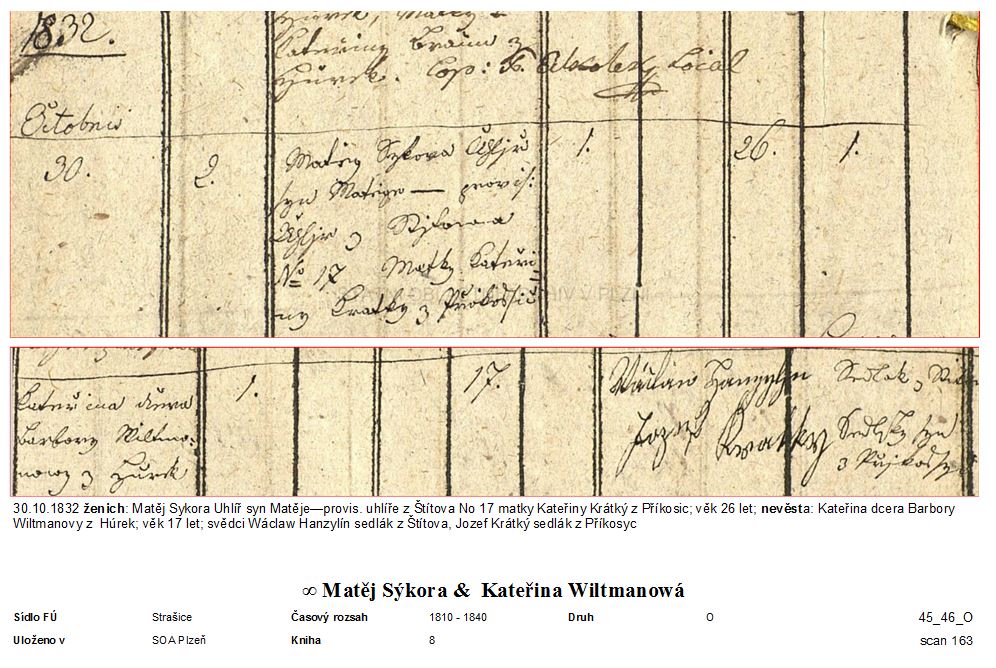 1832.
Kateřiny Braun z
Húrek. Cop: Local
Octobris
30. 2. Matěg Sykora Uhljř 1. 26. 1.
syn Matěge — provis:
Uhljř z Sstjtowa
No 17 Matky Kateři-
ny Kratky z Přikossic
Kateřina dcera 1. 17. Wáclaw Hanzylyn Sedlak z
Barbory Wiltma- Jozef Kratky Sedlsky syn
nowy z Hurek z Přjkossyc
30.10.1832 ženich: Matěj Sykora Uhlíř syn Matěje—provis. uhlíře z Štítova No 17 matky Kateřiny Krátký z Příkosic; věk 26 let; nevěsta: Kateřina dcera Barbory
Wiltmanovy z Húrek; věk 17 let; svědci Wáclav Hanzylín sedlák z Štítova, Jozef Krátký sedlák z Příkosyc
∞ Matěj Sýkora & Kateřina Wiltmanová
Sídlo FÚ Strašice Časový rozsah 1810 - 1840 Druh O 45_46_O
Uloženo v SOA Plzeň Kniha 8 scan 163